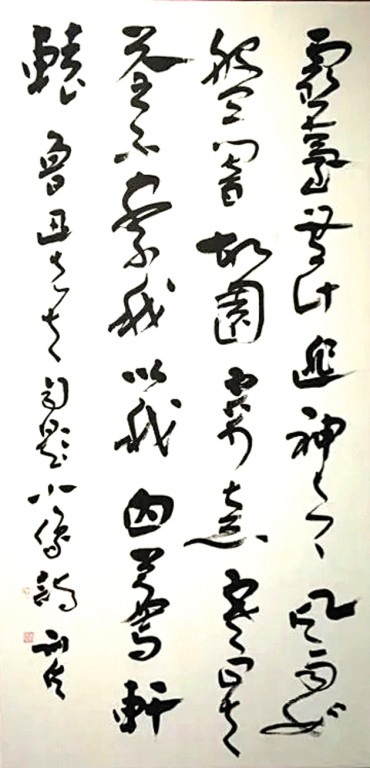 靈臺無計逃神矢風雨如
磐闇故園寄意寒星
荃不察我以我血薦軒
轅 魯迅先生自題小像詩